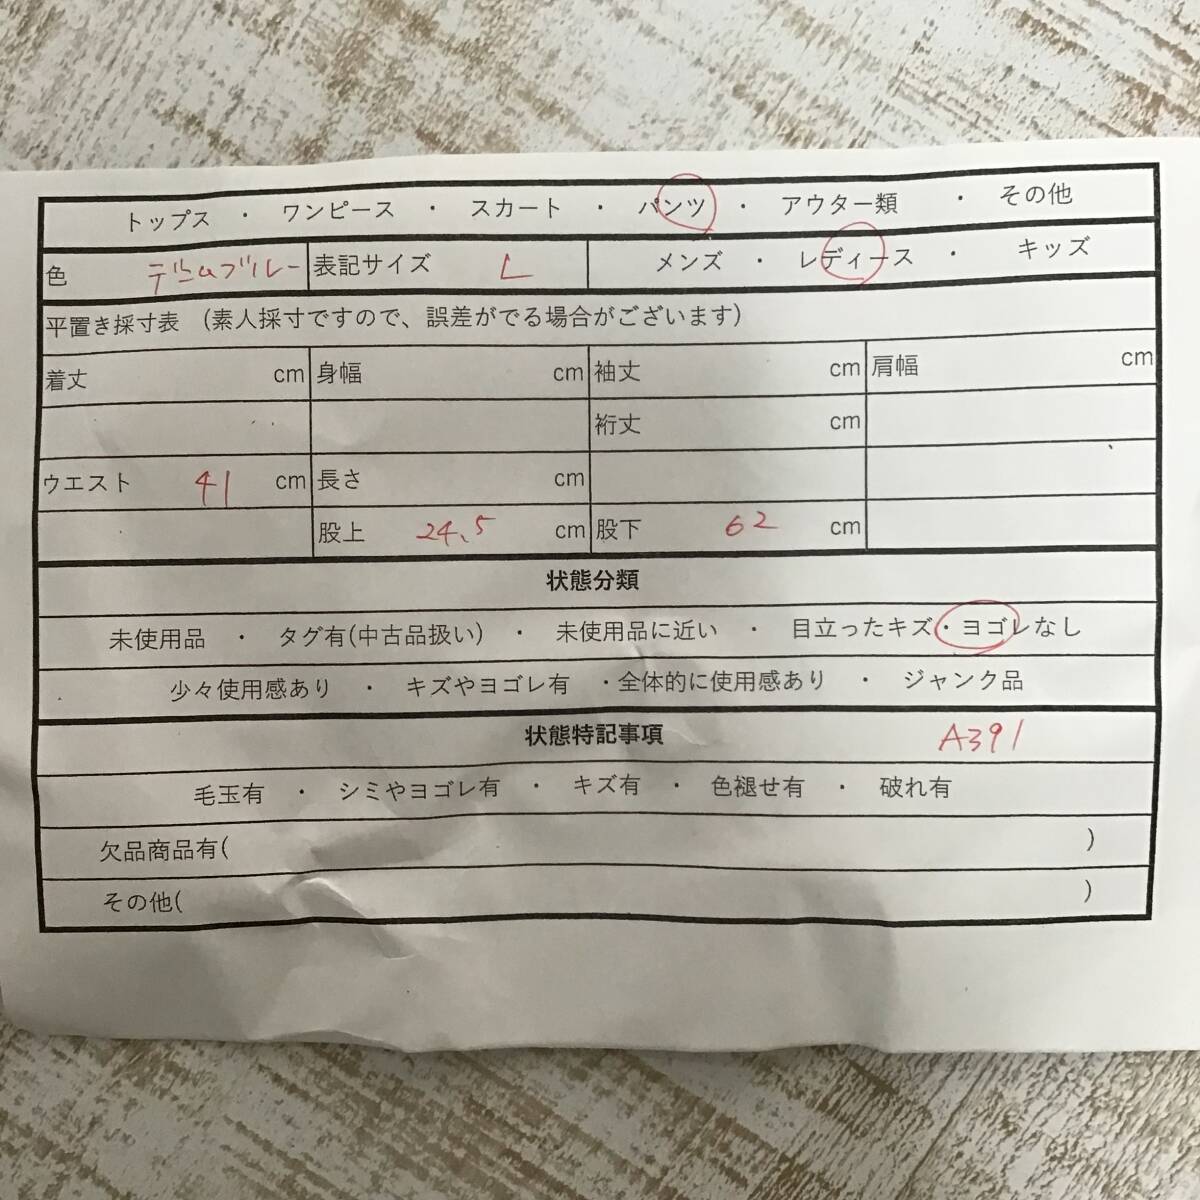 トップス ・ ワンピース ・ スカート ・ パンツ ・ アウター類 ・ その他
色 デニムブルー 表記サイズ L メンズ ・ レディース ・ キッズ
平置き採寸表 (素人採寸ですので、誤差がでる場合がございます)
着丈 cm 身幅 cm 袖丈 cm 肩幅 cm
裄丈 cm
ウエスト 41 cm 長さ cm
股上 24.5 cm 股下 62 cm
状態分類
未使用品 ・ タグ有(中古品扱い) ・ 未使用品に近い ・ 目立ったキズ・ヨゴレなし
少々使用感あり ・ キズやヨゴレ有 ・全体的に使用感あり ・ ジャンク品
状態特記事項 A391
毛玉有 ・ シミやヨゴレ有 ・ キズ有 ・ 色褪せ有 ・ 破れ有
欠品商品有( )
その他( )